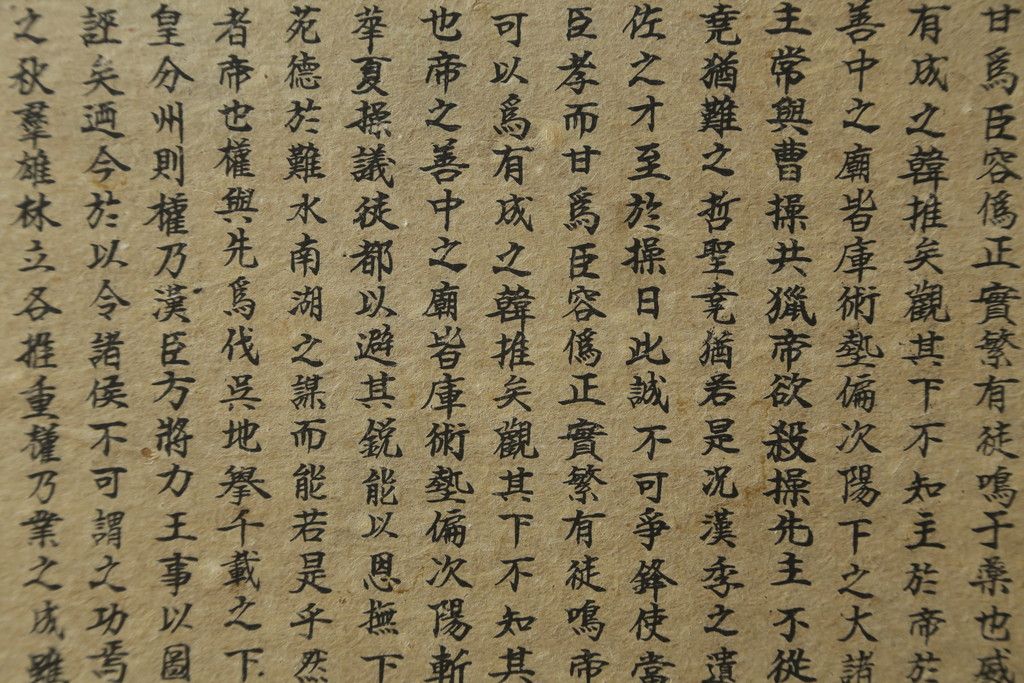 甘爲臣容僞正實繁有徒鳴于桑也威
有成之韓推矣觀其下不知主於帝於
善中之廟皆庫術藝偏次陽下之大諸
主常與曹操共獵帝欲殺操先主不從
堯猶難之哲聖堯猶若是况漢季之遺
佐之才至於操日此誠不可爭鋒使當
臣孝而甘爲臣容僞正實繁有徒鳴帝
可以爲有成之韓推矣觀其下不知其
也帝之善中之廟皆庫術藝偏次陽斬
華夏操議徒都以避其鋭能以恩撫下
苑德於難水南湖之謀而能若是乎然
者帝也權與先爲伐吳地擧千載之下
皇分州則權乃漢臣方將力王事以圖
誣矣迺今於以令諸侯不可謂之功焉
之秋羣雄林立各推重權乃業之成雖